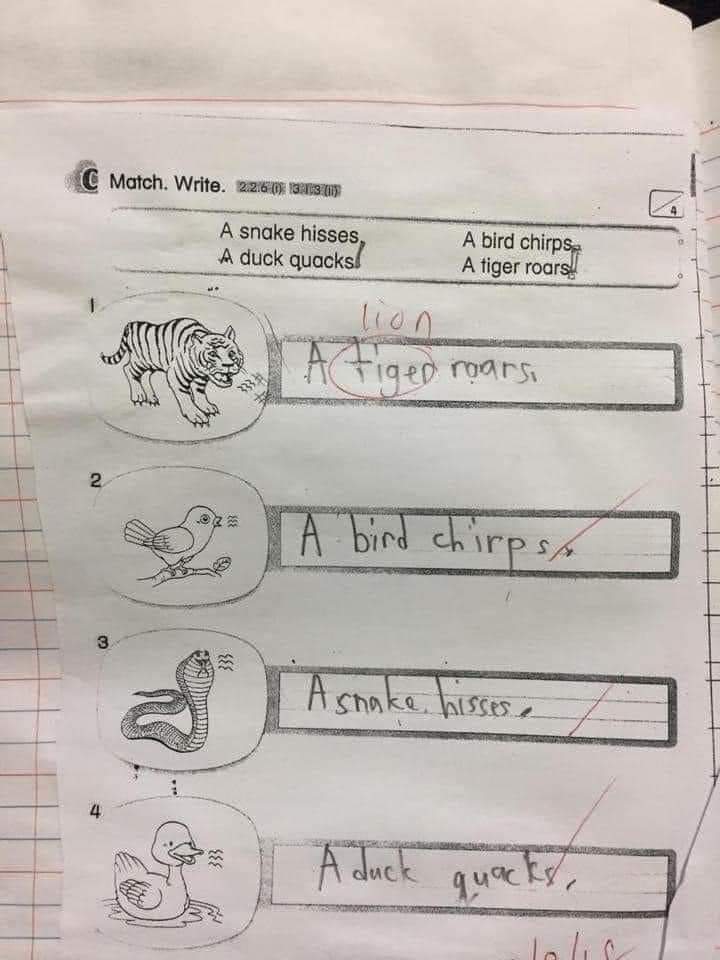 C Match. Write. 2.2.6 (i) 3.1.3 (ii)
4
A snake hisses. A bird chirps.
A duck quacks. A tiger roars.
1
lion
A tiger roars.
2
A bird chirps.
3
A snake hisses.
4
A duck quacks.